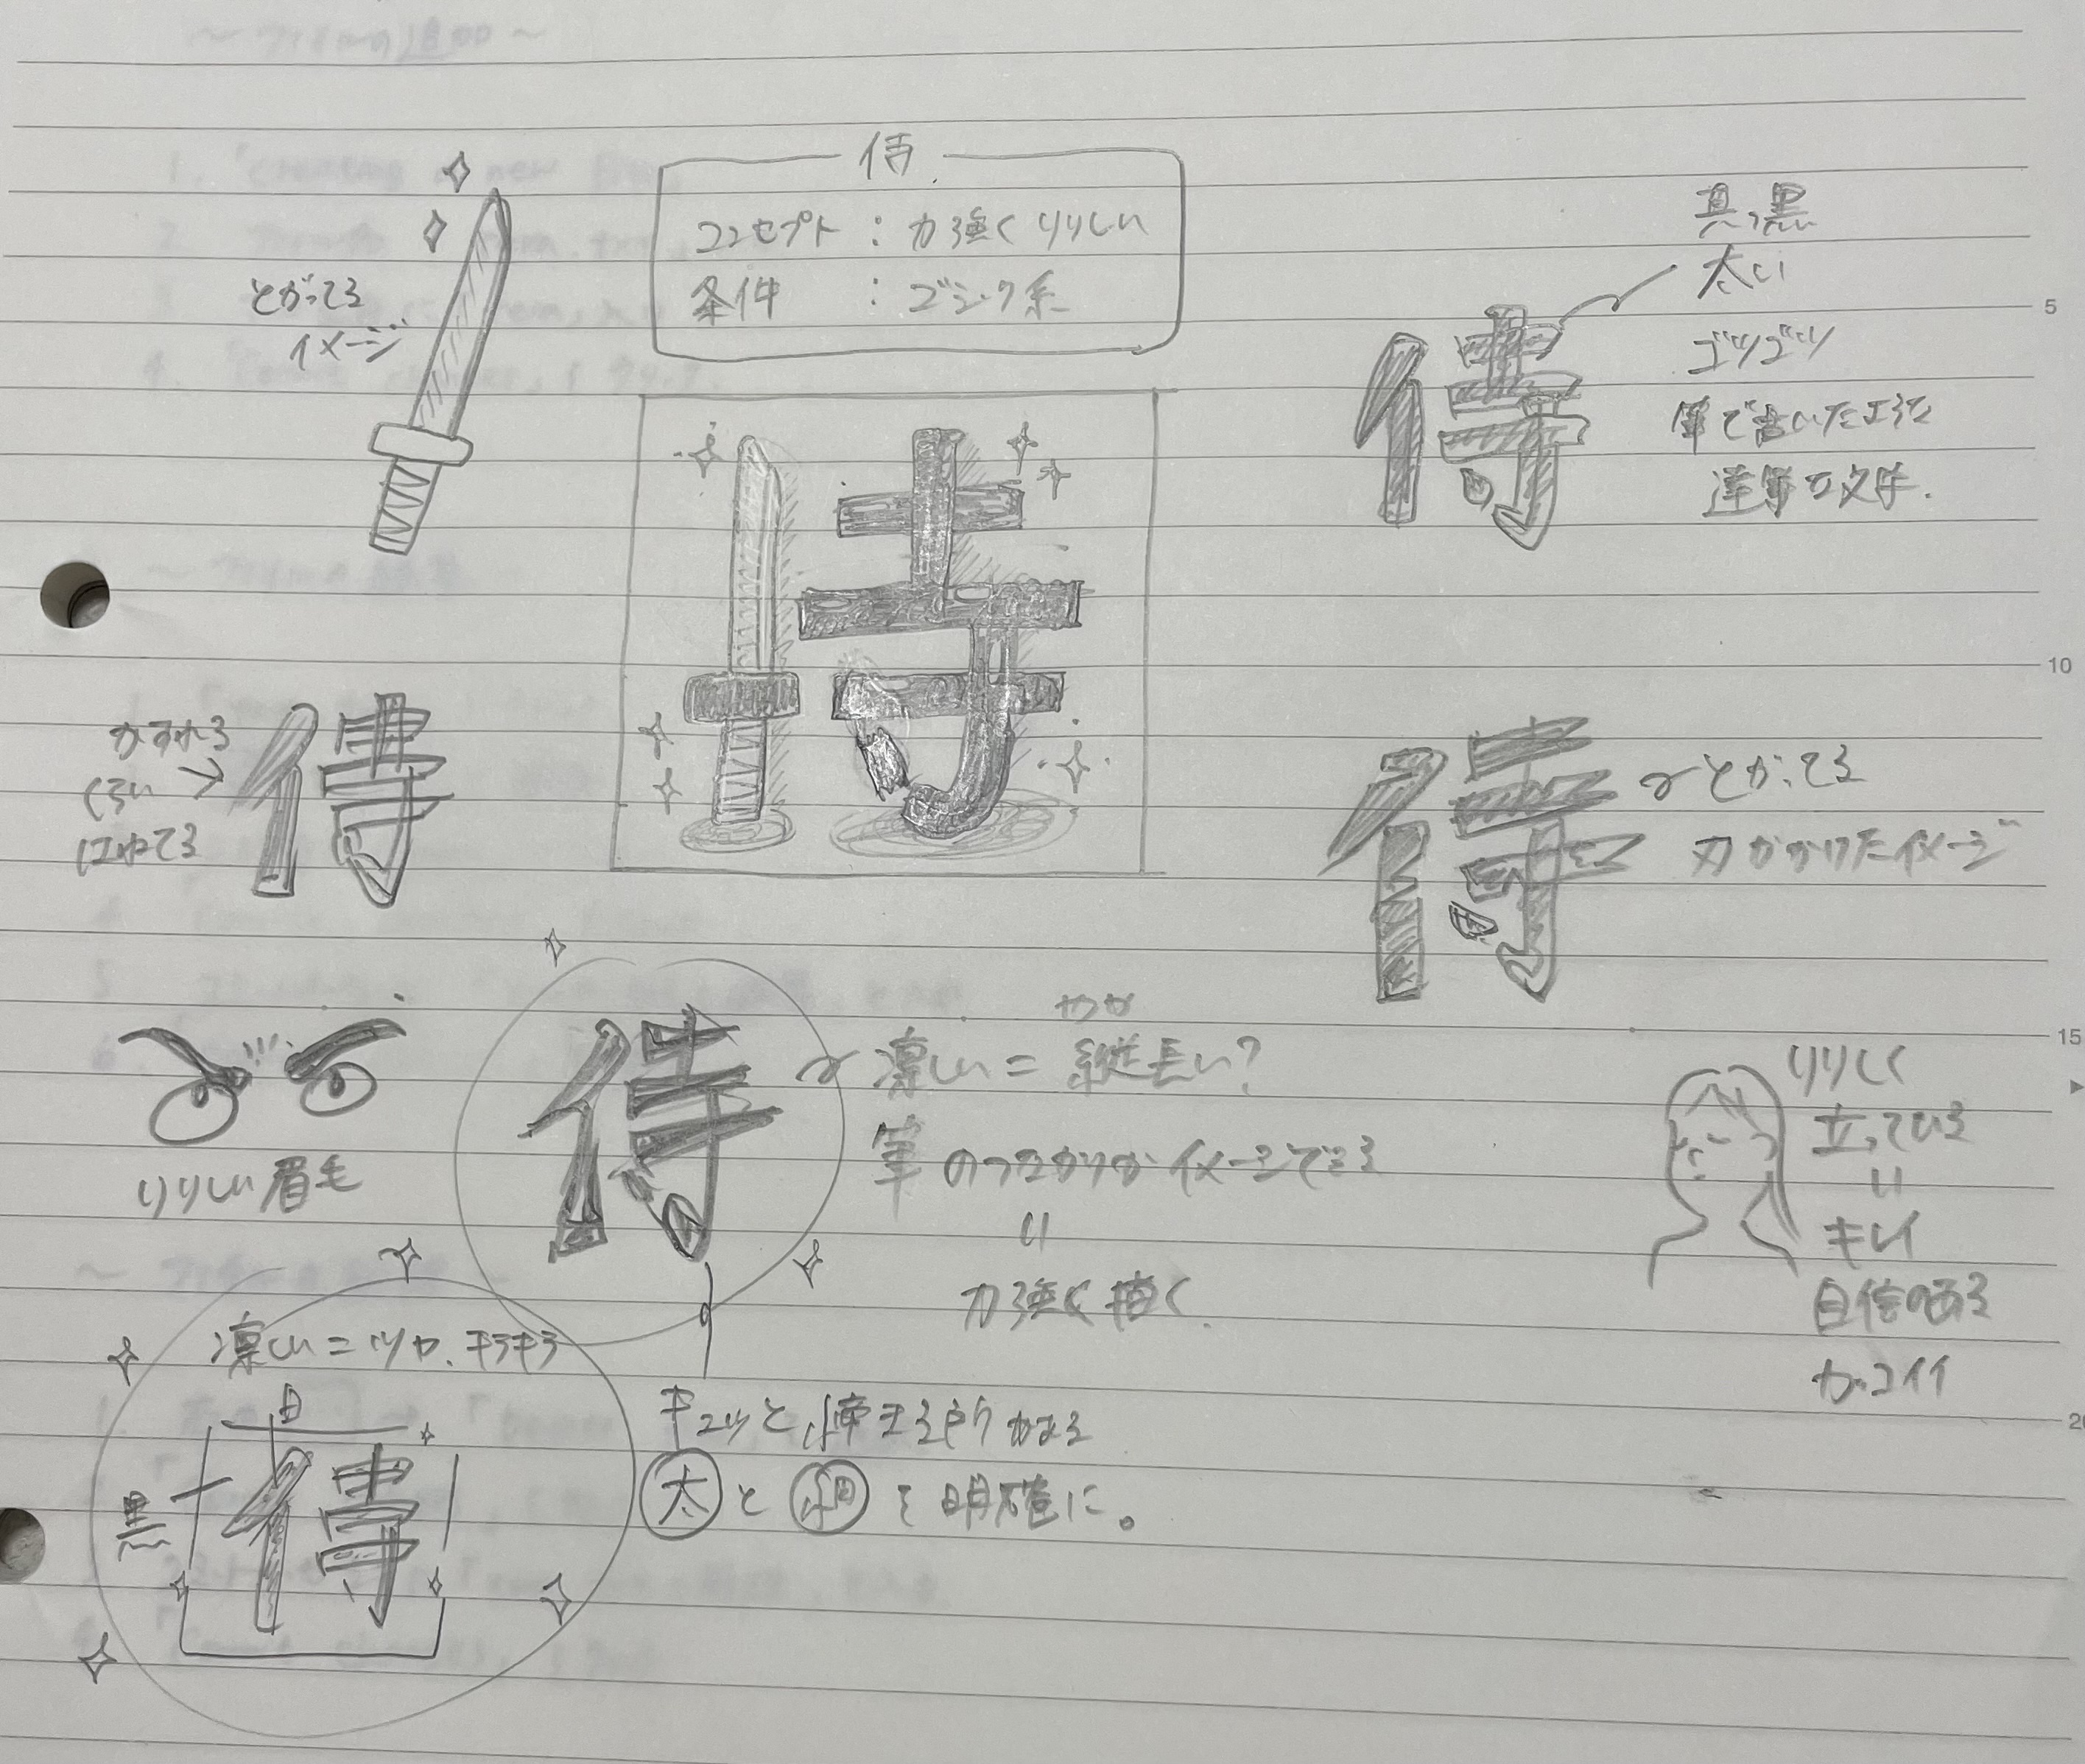 侍
コンセプト：力強くりりしい
条件：ゴシック系
とがってる
イメージ
真っ黒
太い
ゴツゴツ
筆で書いたような
達筆な文字.
侍
侍
かすれる
くらい
はねてる
侍
侍
とがってる
刃がかけたイメージ
りりしい眉毛
侍
凛しい＝縦長い？
筆のつながりがイメージできる
力強く描く.
りりしく
立っている
キレイ
自信のある
カッコイイ
凛しい＝ツヤ、キラキラ
白
黒
侍
キュッと
所がある
太と細を明確に。
5
10
15
20